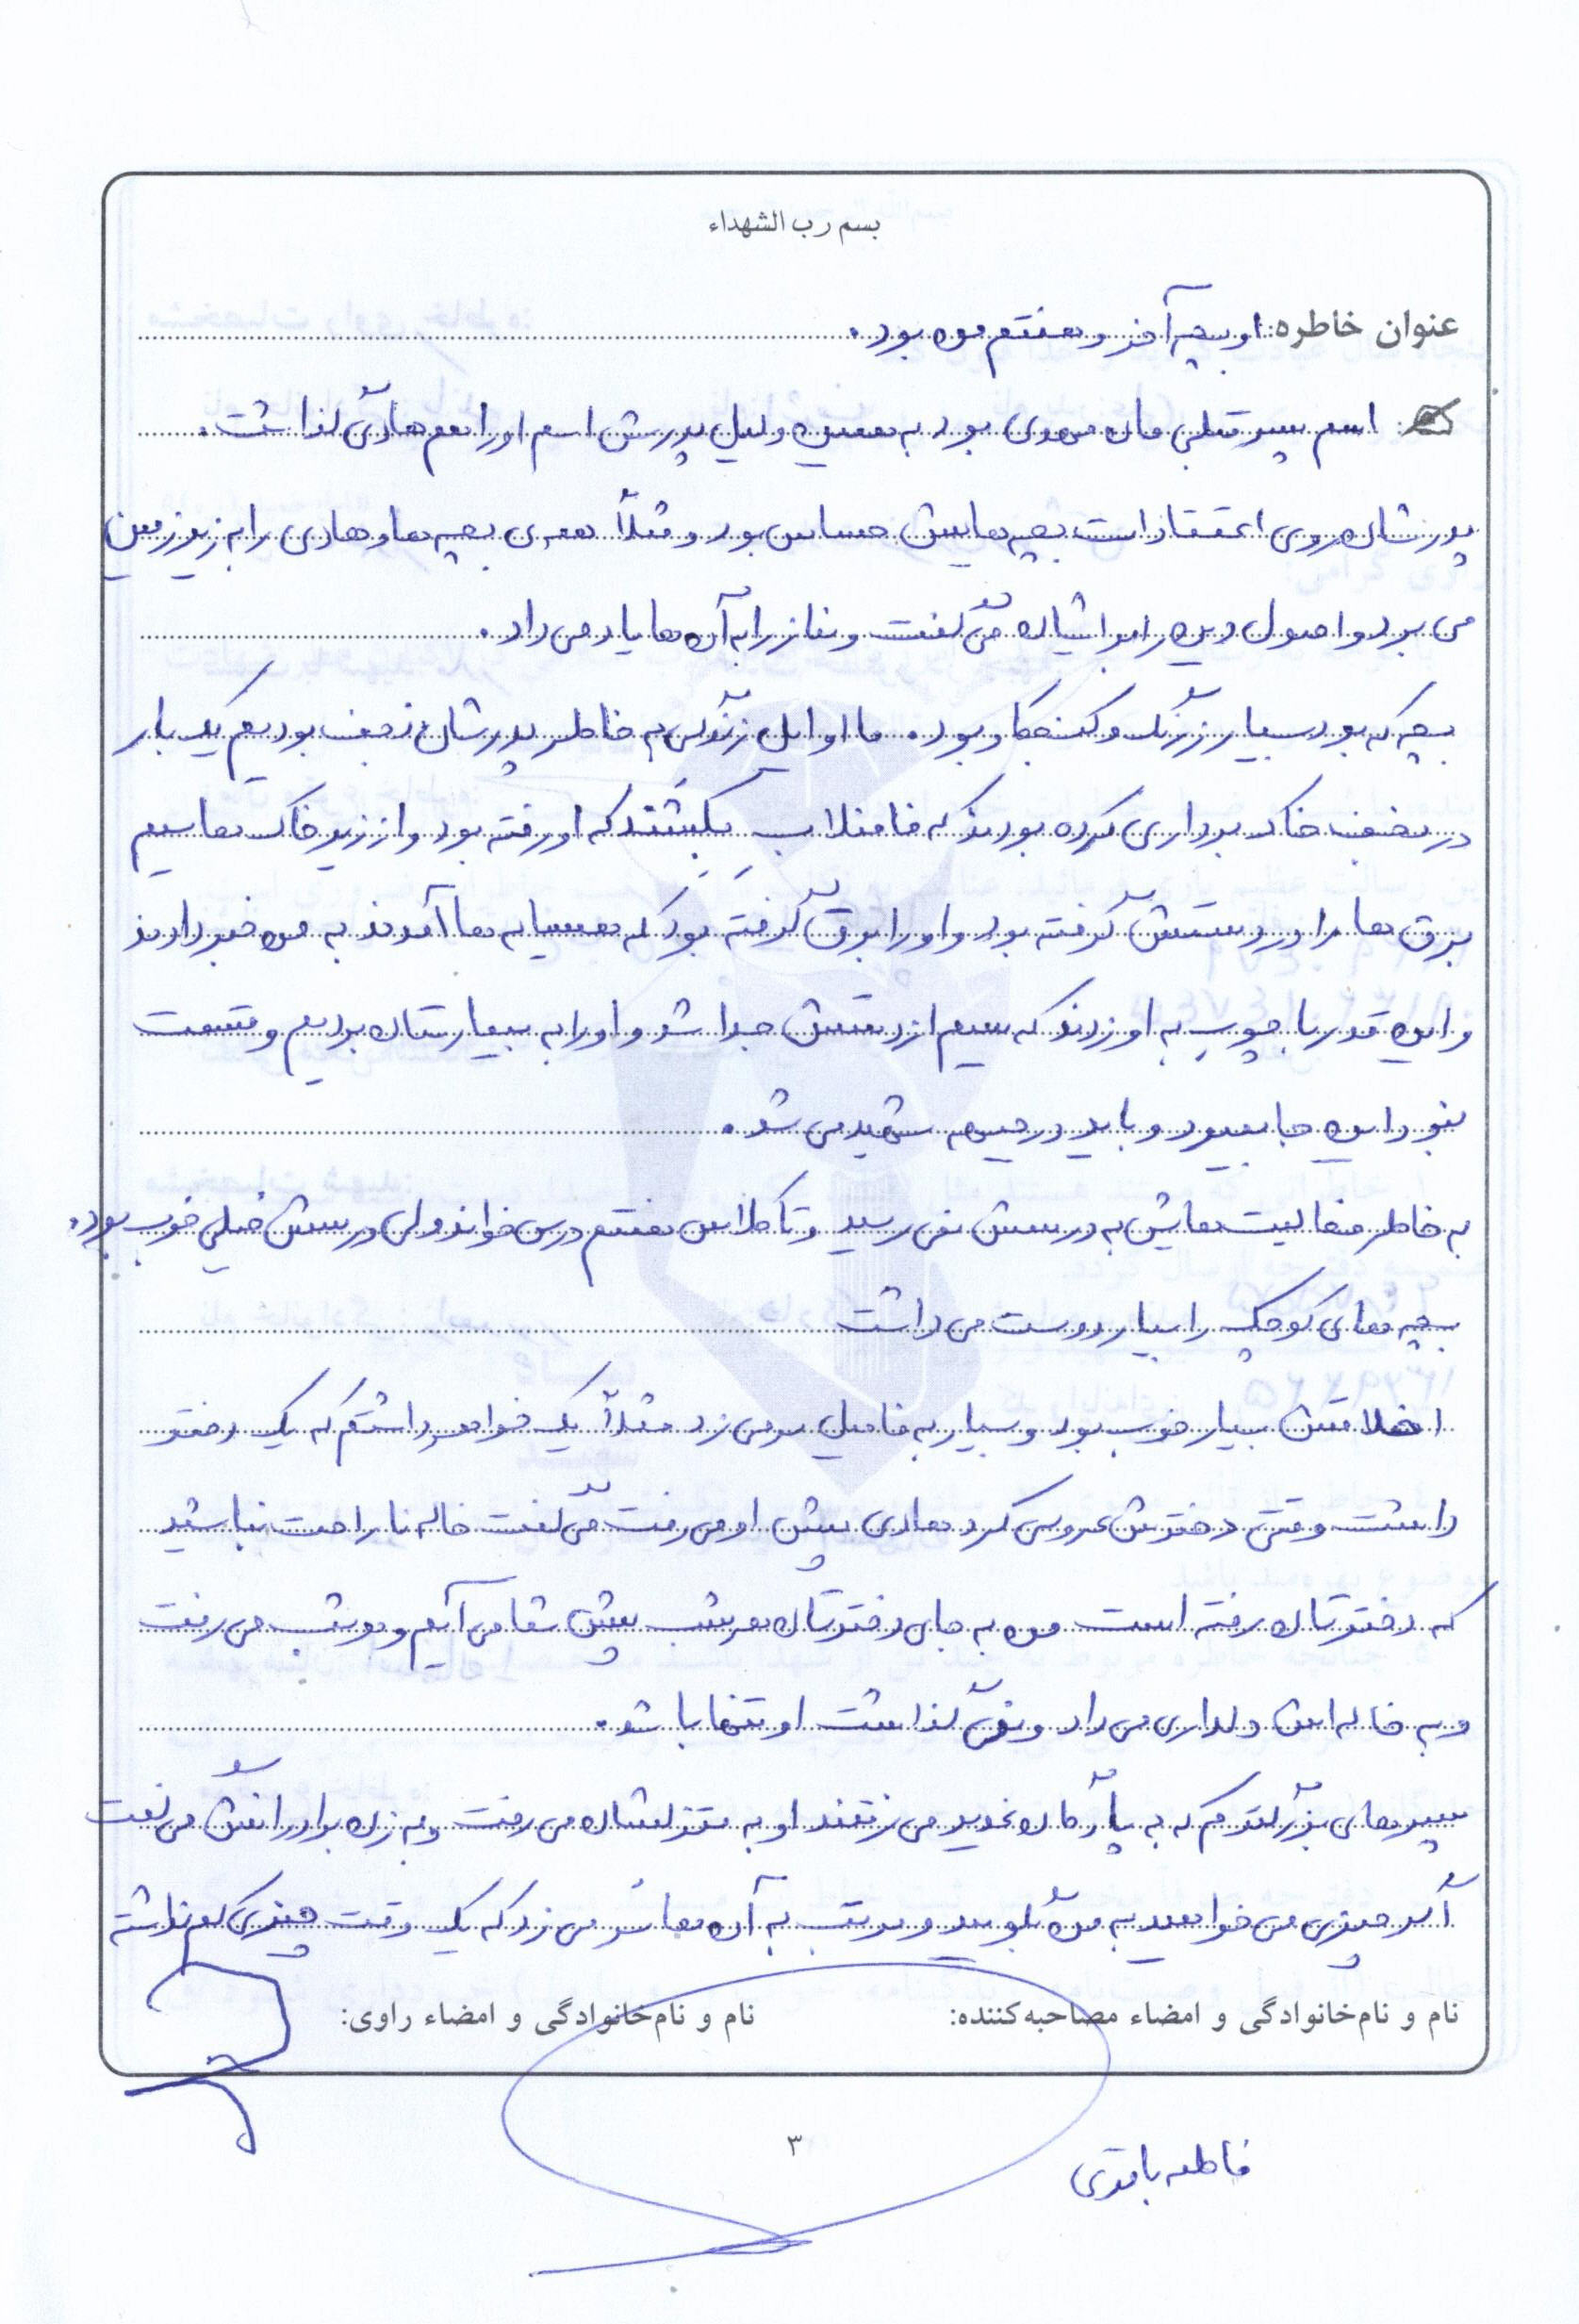 بسم رب الشهداء
عنوان خاطره: او بچه آخر و هفتم من بود.
اسم پسر قبلی مان مهدی بود به همین دلیل پدرش اسم او را هم هادی گذاشت.
پدرشان روی اعتقادات بچه هایش حساس بود و مثلاً همه ی بچه ها و هادی را به زیرزمین
می برد و اصول دین را برایشان می گفت و نماز را به آن ها یاد می داد.
بچه که بود بسیار زرنگ و کنجکاو بود. ما اوایل زندگی به خاطر پدرشان نجف بودیم یک بار
در نجف خاک برداری کرده بودند که فاضلاب بکشند که او رفته بود و از زیر خاک ها سیم
برق ها را در دستش گرفته بود و او را برق گرفته بود که همسایه ها آمدند به من خبر دادند
و این قدر با چوب به او زدند که سیم از دستش جدا شد و او را به بیمارستان بردیم و قسمت
نبود این جا بمیرد و باید در جبهه شهید می شد.
به خاطر فعالیت هایش به درسش نمی رسید و تا کلاس هفتم درس خواند ولی درسش خیلی خوب بود.
بچه های کوچک را بسیار دوست می داشت
اخلاقش بسیار خوب بود و بسیار به فامیل سر می زد مثلاً یک خواهر داشتم که یک دختر
داشت وقتی دخترش عروسی کرد هادی پیش او می رفت می گفت خاله ناراحت نباشید
که دخترتان رفته است من به جای دخترتان هر شب پیش شما می آیم و هر شب می رفت
و به خاله اش دلداری می داد و نمی گذاشت او تنها باشد.
پسرهای بزرگترم که به پادگان می رفتند او به منزلشان می رفت و به زن برادرانش می گفت
اگر چیزی می خواهید به من بگویید و مرتب به آن ها سر می زد که یک وقت چیزی کم نداشته
نام و نام‌خانوادگی و امضاء مصاحبه‌کننده: نام و نام‌خانوادگی و امضاء راوی:
فاطمه باقری
۳